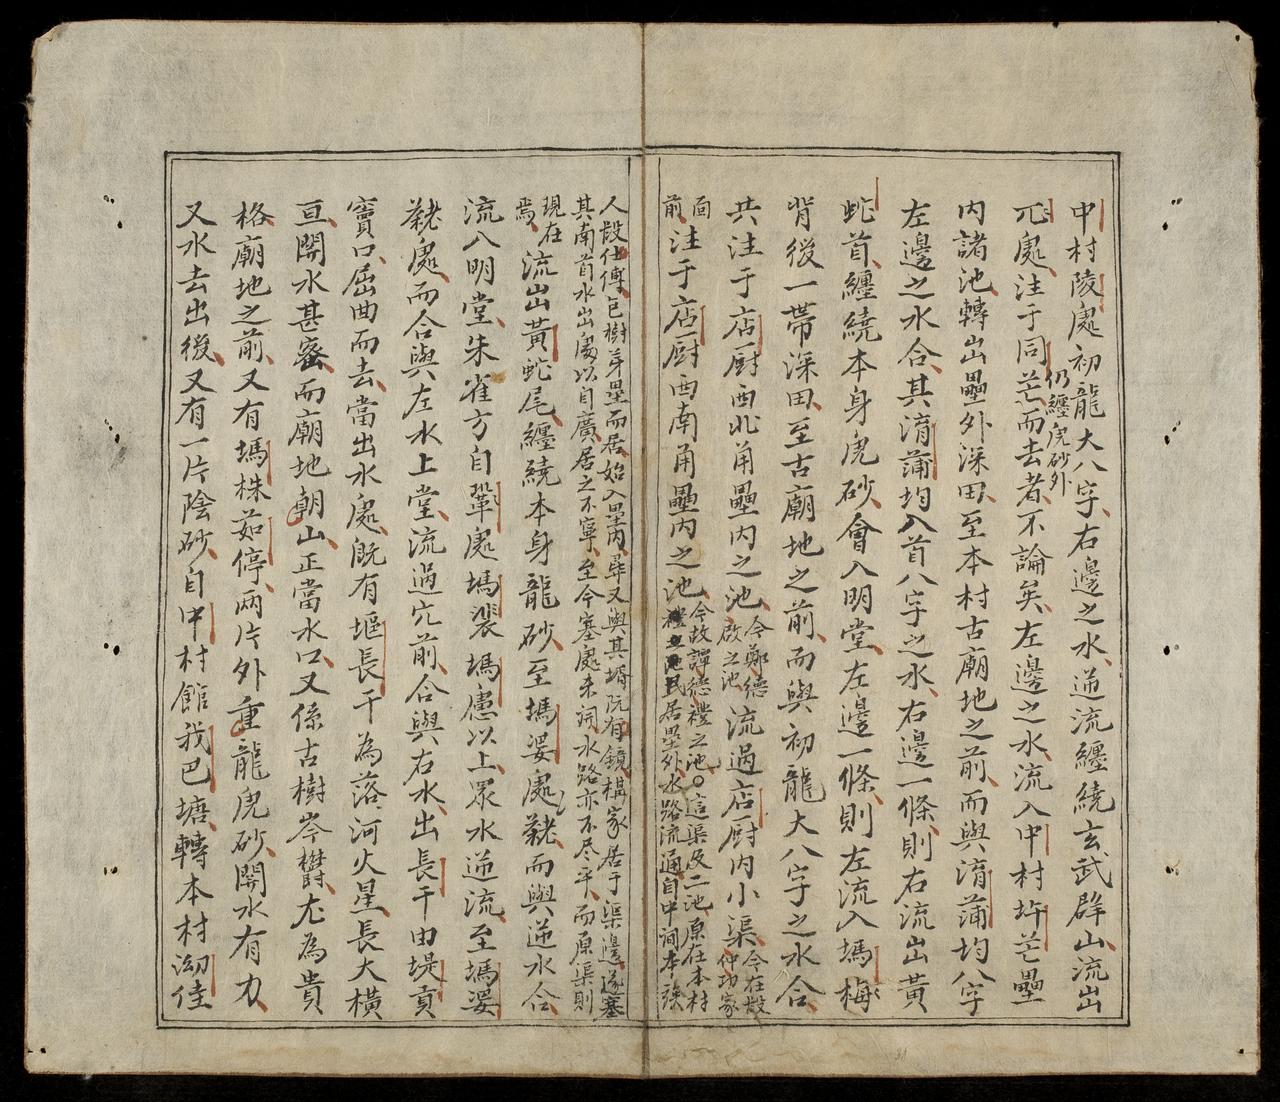 中村陵處初龍大八字右邊之水逆流纏繞玄武辟山流出
處注于同芒而去者不論矣左邊之水流入中村圻芒壘
仍纏虎砂外
内諸池轉出壘外深田至本村古廟地之前而與淯蒲均八字
左邊之水合其淯蒲均入首八字之水右邊一條則右流出黃
蛇首纏繞本身虎砂會入明堂左邊一條則左流入塢梅
背後一帶深田至古廟地之前而與初龍大八字之水合
共注于店厨西北甬壘内之池
今鄭德
啟之池
流過店厨内小渠
今在殷
仲功家
面
前
注于店厨西南甬壘内之池
今故譚德禮之池○這渠及二池原在本村
民居壘外水路流通自中間本族
人殷仕傅屯樹芽壘而居始入壘内尋又與其壻阮有鏡構家居于渠邊遂塞
其南首水出處以自廣居之不寧至今塞處未詞水路亦不尽平而原渠則
現在
焉
流出黃蛇尾纏繞本身龍砂至塢婆處而與逆水合
流入明堂朱雀方自鞏處塢裴塢慮以上眾水逆流至塢婆
處而合與左水上堂流過穴前合與右水出長干由堤貢
竇口屈曲而去當出水處既有堰長干為落河火星長大橫
亘關水甚密而廟地朝山正當水口又係古樹岑欝尤為貴
格廟地之前又有塢株茹停兩片外重龍虎砂關水有力
又水去出後又有一片陰砂自中村館我巴塘轉本村沕佳